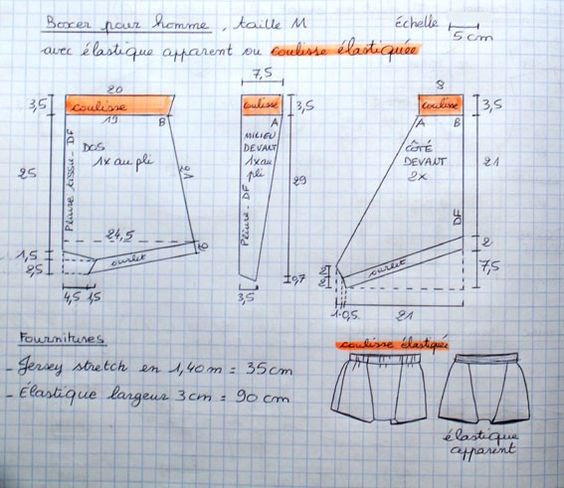 Boxer pour homme, taille M
échelle
5 cm
avec élastique apparent ou coulisse élastiquée
20
3,5
coulisse
19
B
DOS
1x au pli
Pliure tissu - DF
25
24,5
ourlet
1,5
2,5
4,5
1,5
7,5
coulisse
3,5
A
MILIEU
DEVANT
1x au
pli
Pliure - DF
29
0,7
3,5
8
coulisse
3,5
A
B
CÔTÉ
DEVANT
2x
21
DF
2
7,5
ourlet
2
2
1
0,5
21
Fournitures
- Jersey stretch en 1,40m = 35cm
- Elastique largeur 3cm = 90 cm
coulisse élastiquée
élastique
apparent